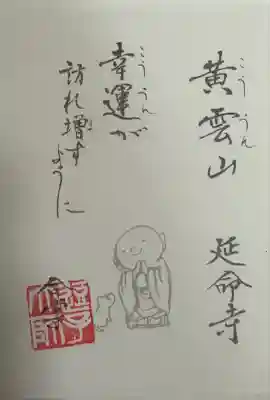 こううん
黄雲山 延命寺
こううん
幸運が
訪れ増す
ように
合掌